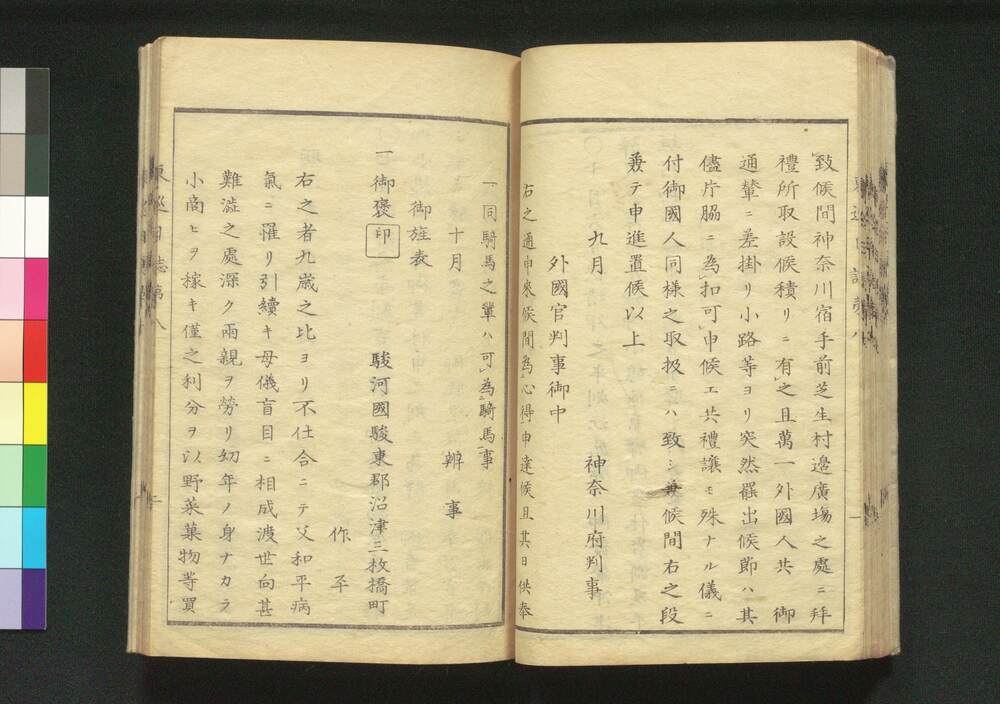 致候間神奈川宿手前芝生村邊廣場之處ニ拜
禮所取設候積リニ有之且萬一外國人共御
通輦ニ差掛リ小路等ヨリ突然罷出候節ハ其
儘片脇ニ為扣可申候エ共禮讓モ殊ナル儀ニ
付御國人同様之取扱ニハ致シ兼候間右之段
兼テ申進置候以上
九月 神奈川府判事
外國官判事御中
右之通申來候間為心得申達候且其日供奉
一同騎馬之輩ハ可為騎馬事
十月 辨事
御旌表
一御褒印 駿河國駿東郡沼津三枚橋町
作平
右之者九歳之比ヨリ不仕合ニテ父和平病
氣ニ罹リ引續キ母儀盲目ニ相成渡世向甚
難澁之處深ク兩親ヲ勞リ幼年ノ身ナカラ
小商ヒヲ稼キ僅之利分ヲ以野菜菓物等買
東巡日誌第八